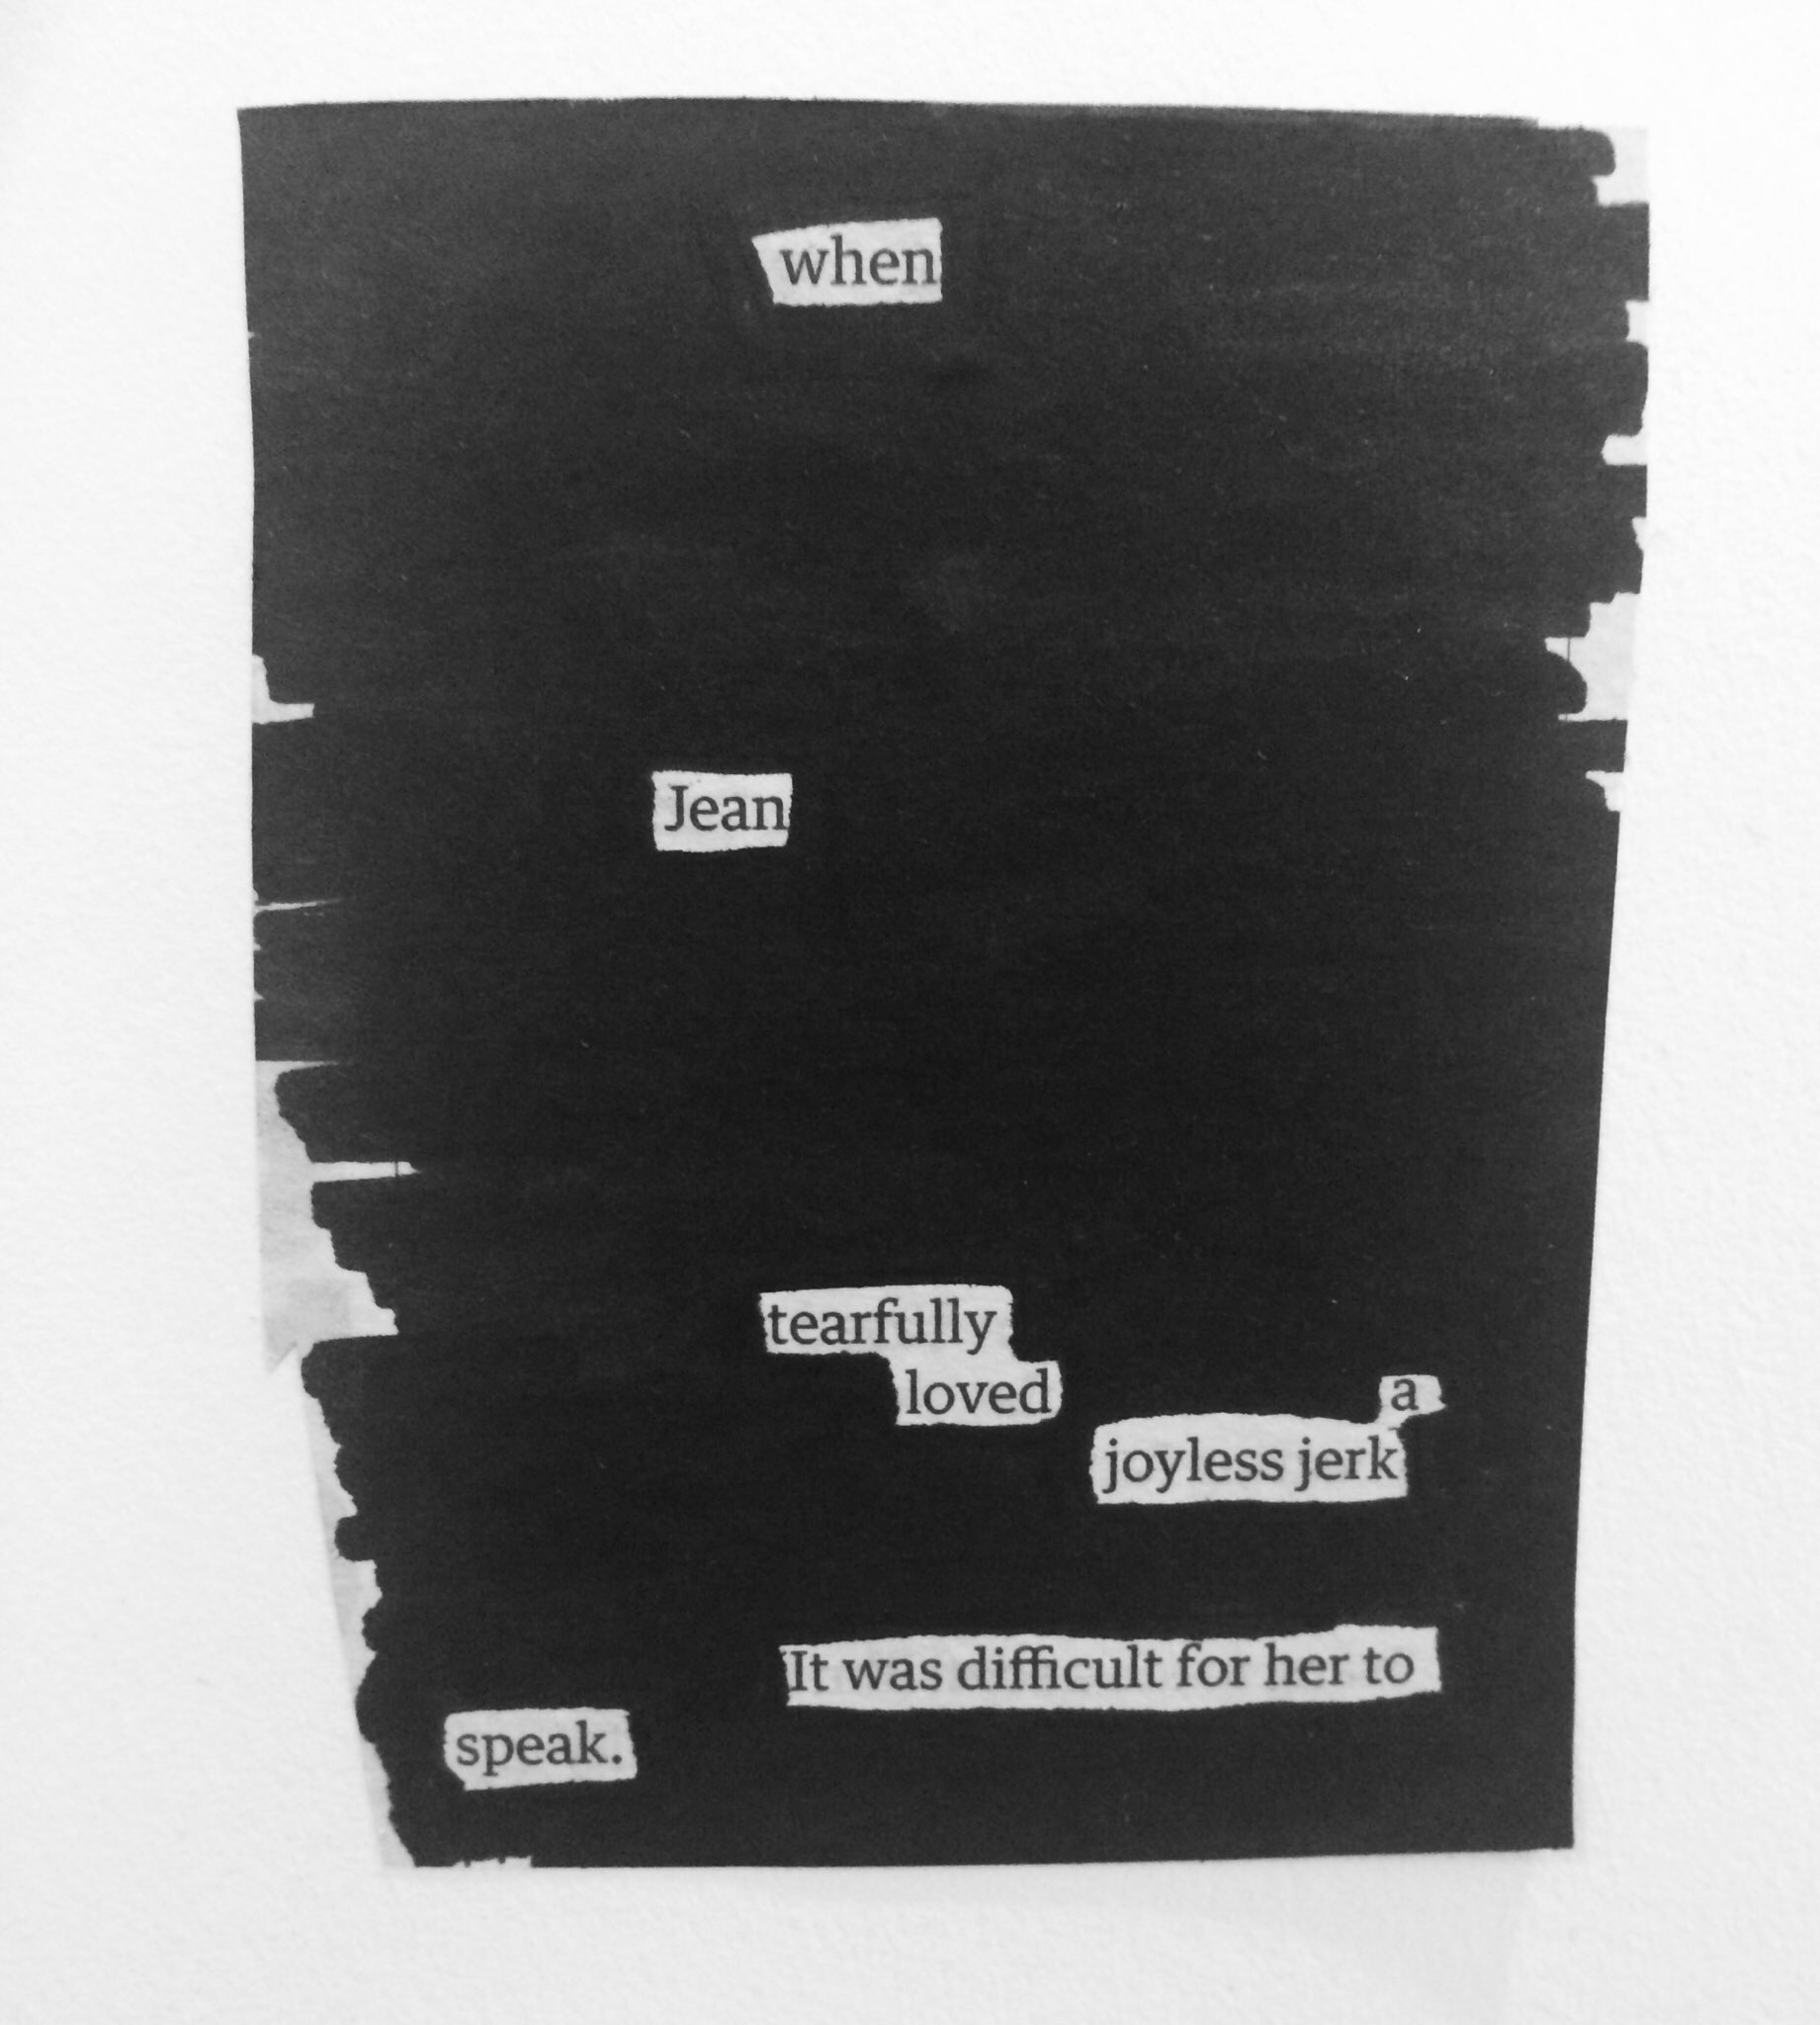 when
Jean
tearfully
loved a
joyless jerk
It was difficult for her to
speak.